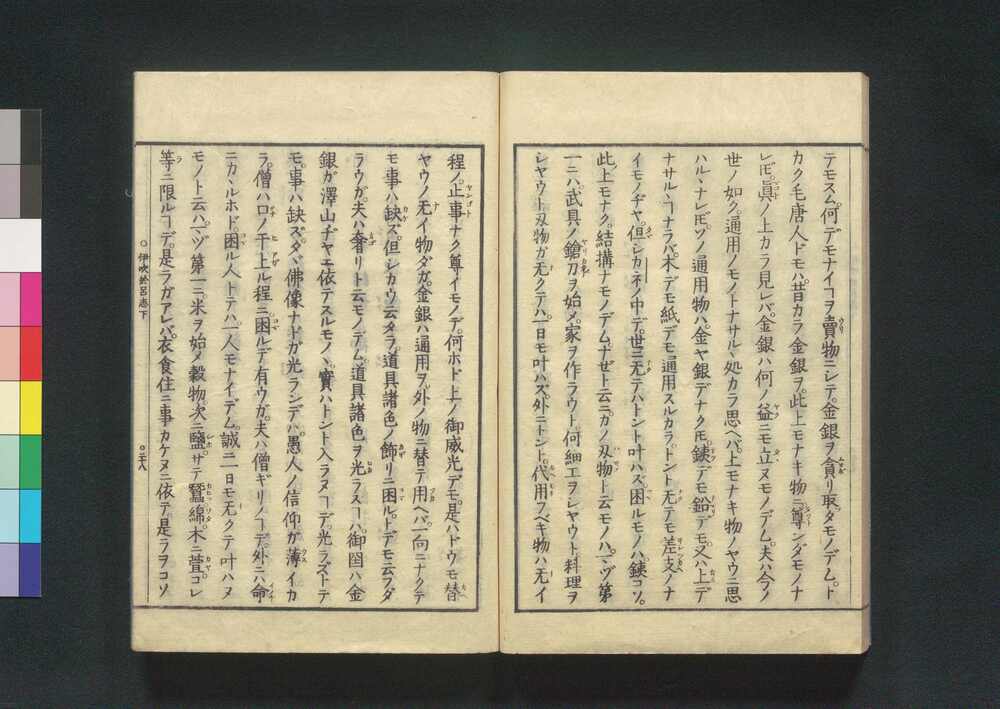 テモスム。何デモナイヿヲ賣物ニシテ。金銀ヲ貪リ取ダモノデム。ト
カク毛唐人ドモハ昔カラ金銀ヲ。此上モナキ物ニ尊ンダモノナ
レドモ。眞ノ上カラ見レバ。金銀ハ何ノ益ニモ立ヌモノデム。夫ハ今ノ
世ノ如ク。通用ノモノトナサルヽ処カラ思ヘバ。上モナキ物ノヤウニ思
ハルヽナレドモ。ソノ通用物ハ。金ヤ銀デナクトモ。銕デモ鉛デモ。又ハ上デ
ナサルヽヿナラバ。木デモ紙デモ通用スルカラ。トント无テモ差支ノナ
イモノヂヤ。但シカネノ中デ。世ニ无テハトント叶ハズ。困ルモノハ銕コソ。
此上モナク。結搆ナモノデムナゼト云ニ。カノ刃物ト云モノハ。マヅ第
一ニハ。武具ノ鎗刀ヲ始メ。家ヲ作ラウト。何細工ヲシヤウト料理ヲ
シヤウト刄物ガ无クテハ。一日モ叶ハズ。外ニトント。代用フベキ物ハ无イ
程ノ。止事ナク尊イモノデ。何ホド上ノ御威光デモ。是ハドウモ替
ヤウノ无イ物ダガ。金銀ハ通用ヲ。外ノ物ニ替テ用ヘバ。一向ニナクテ
モ事ハ缺ズ。但シカウ云タラ。道具諸色ノ飾リニ困ルト。デモ云フダ
ラウガ。夫ハ奢リト云モノデム。道具諸色ヲ光ラスヿハ。御國ハ金
銀ガ澤山ヂヤエ依テスルモノヽ。實ハトント入ラヌヿデ。光ラズトテ
モ。事ハ缺ズ。ダヾ佛像ナドガ光ランデハ。愚人ノ信仰ガ薄イカ
ラ。僧ハ口ノ干上ル程ニ困ルデ有ウガ。夫ハ僧ギリノヿデ。外ニハ命
ニカヽルホド。困ル人トテハ。一人モナイデム。誠ニ一日モ无クテ叶ハヌ
モノト云ハ。マヅ第一ニ。米ヲ始メ穀物。次ニ鹽。サテ蠶綿木ニ萱。コレ
等ニ限ルヿデ。是ラガアレバ。衣食住ニ事カケヌニ依テ。是ラヲコソ
伊吹於呂志下
○二十八